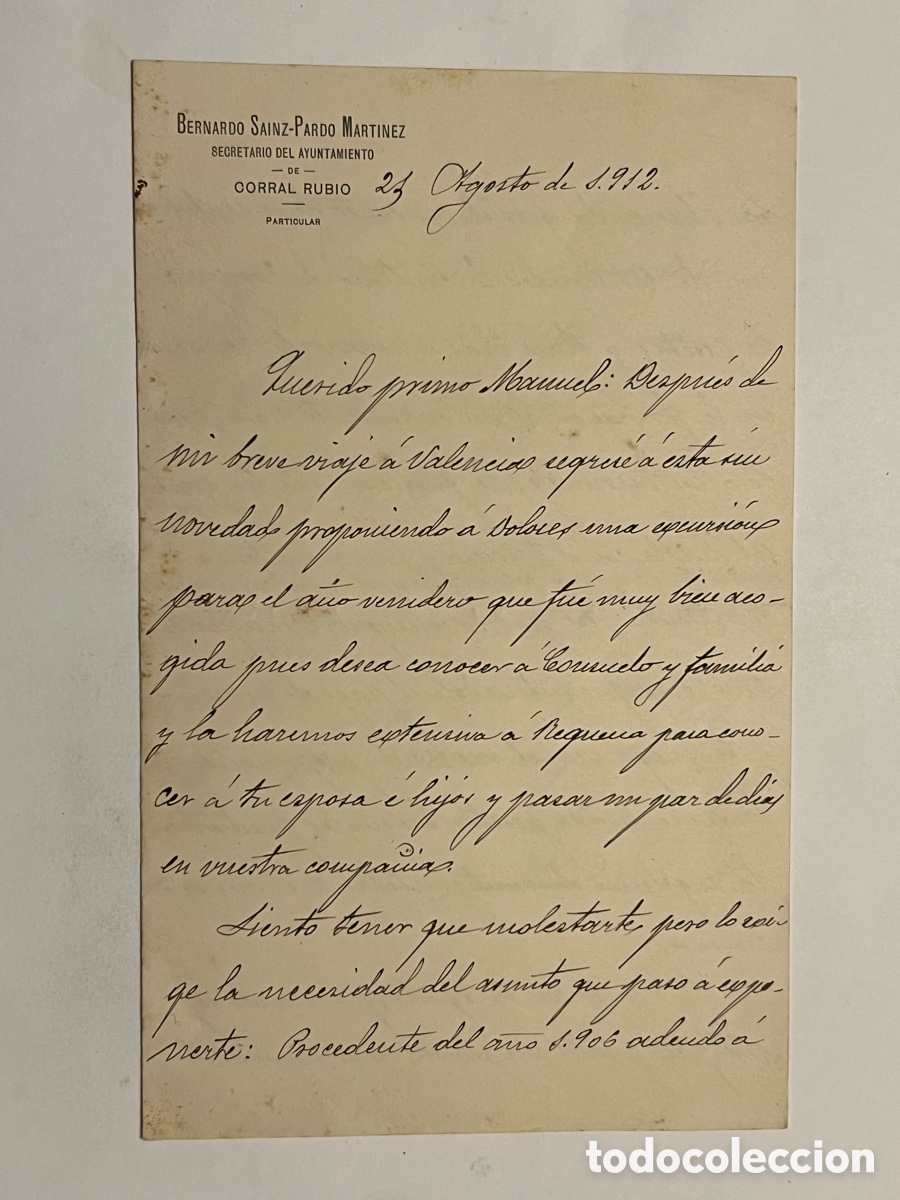 BERNARDO SAINZ-PARDO MARTINEZ
SECRETARIO DEL AYUNTAMIENTO
— DE —
CORRAL RUBIO
PARTICULAR
Agosto de 1.912.
Querido primo Manuel: Después de
mi breve viaje á Valencia regresé á esta sin
novedad proponiendo á Dolores una excursión
para el año venidero que fué muy bien aco-
gida pues desea conocer á Consuelo y familia
y la haremos extensiva á Requena para cono-
cer á tu esposa é hijos y pasar un par de dias
en vuestra compañia.
Siento tener que molestarte, pero lo exi-
ge la necesidad del asunto que paso á expo-
nerte: Procedente del año 1.906 adeudo á
todocoleccion